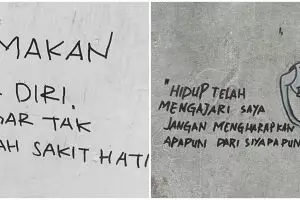 MAKAN
DIRI.
AR TAK
AH SAKIT HATI
"HIDUP TELAH
MENGAJARI SAYA
JANGAN MENGHARAPKAN
APAPUN DARI SIYAPAPUN